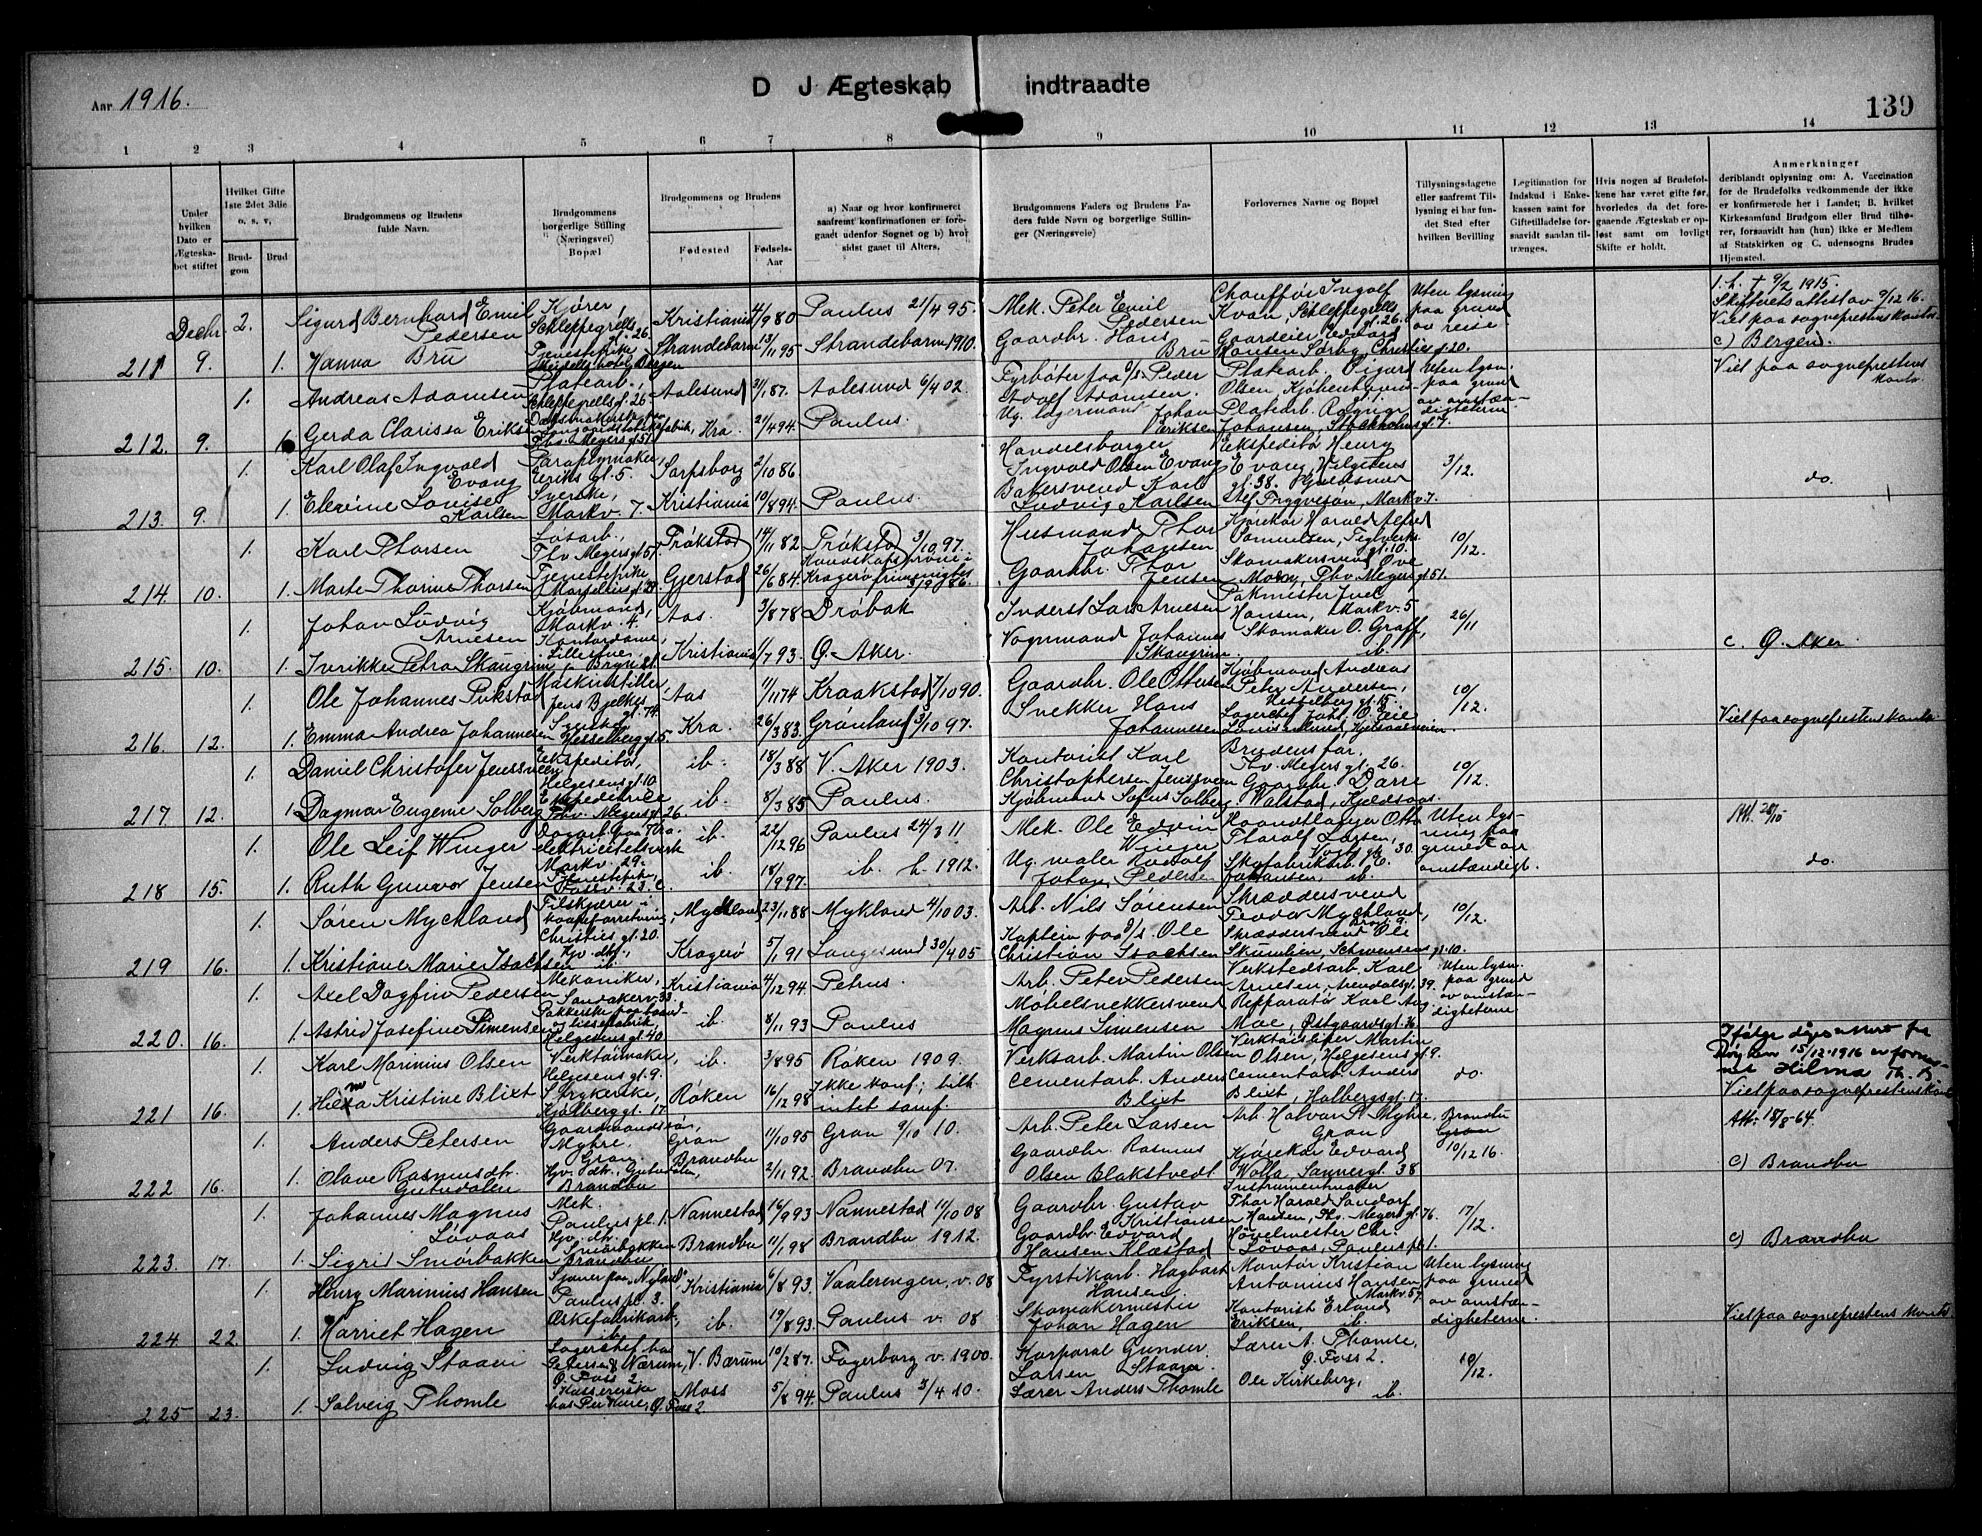 Aar 1916.
D J Ægteskab indtraadte
139
1 2 3 4 5 6 7 8 9 10 11 12 13 14
Under hvilken Dato er Ægteskabet stiftet
Hvilket Gifte 1ste 2det 3die o. s. v,
Brudgom
Brud
Brudgommens og Brudens fulde Navn.
Brudgommens borgerlige Stilling (Næringsvei) Bopæl
Brudgommens og Brudens
Fødested
Fødsels-Aar
a) Naar og hvor konfirmeret saafremt konfirmationen er foregaaet udenfor Sognet og b) hvor sidst gaaet til Alters.
Brudgommens Faders og Brudens Faders fulde Navn og borgerlige Stillinger (Næringsveie)
Forlovernes Navne og Bopæl
Tillysningsdagene eller saafremt Tillysning ei har fundet Sted efter hvilken Bevilling
Legitimation for Indskud i Enkekassen samt for Giftetilladelse forsaavidt saadan tiltrænges.
Hvis nogen af Brudefolkene har været gifte før, hvorledes da det foregaaende Ægteskab er opløst samt om lovligt Skifte er holdt.
Anmerkninger deriblandt oplysning om: A. Vaccination for de Brudefolks vedkommende der ikke er konfirmerede her i Landet; B. hvilket Kirkesamfund Brudgom eller Brud tilhører, forsaavidt han (hun) ikke er Medlem af Statskirken og C. udensogns Brudes Hjemsted.
Decbr. 2. Sigurd Bernhard Emil Pedersen Kjører, Schleppegrells gt. 26 Kristiania 4/9 80 Paulus 21/4 95. Mek. Peter Emil Pedersen Chauffør Ingolf Kvan, Schleppegrells gt. 26. Uten lysning paa grund av reise 1. h. † 9/2 1915. Skifterets attest av 9/12 16. Viet paa sogneprestens kontor
211 9. 1. Hanna Bru Tjenestepike Bergen Strandebarm 13/11 95 Strandebarm 1910. Gaardbr. Hans Bru Gaardeier Edvard Hansen Sørby, Christies gt. 20. c) Bergen.
1. Andreas Adamsen Platearb., Schleppegrells gt. 26 Aalesund 21/1 87. Aalesund 6/4 02 Fyrbøter paa d/s. Peder Adolf Adamsen. Platearb. Sigurd Olsen, Kjøbenhavns gt. 1. Uten lysn. paa grund av omstændigheterne Viet paa sogneprestens kontor
212. 9. 1. Gerda Clarissa Eriksen Thv. Meyers gt. 51 Kra. 21/4 94 Paulus. Ug. lagermand Johan Eriksen Platearb. Ragnar Johansen, Stockholms gt. 7.
1. Karl Olaf Ingvald Evang Paraplymaker, Eiriks gt. 5. Sarpsborg 2/10 86 Handelsborger Ingvald Olsen Evang Ekspeditør Henry Evang, Helgesens gt. 38. 3/12.
213. 9. 1. Elevine Lovise Karlsen Syerske, Markv. 7. Kristiania 10/8 94. Paulus. Bakersvend Karl Ludvig Karlsen Alf Tryggveson, Markv. 7. do.
1. Karl Thorsen Løsarb., Thv. Meyers gt. 51 Trøkstad 14/11 82 Trøkstad 3/10 97. Husmand Thor Johansen Kjørekar Harald Alfred Samuelsen, Teglverks gt. 10. 10/12.
214. 10. 1. Marte Thorine Thorsen Tjenestepike Gjerstad 26/6 84. Kragerø Gaardbr. Thor Jensen Skomakersvend Ove Moen, Thv. Meyers gt. 51.
1. Johan Ludvig Arnesen Kjøbmand, Markv. 4. Aas. 3/8 78 Drøbak Inderst Lars Arnesen Pakmester Juel Hansen, Markv. 5 26/11
215. 10. 1. Ivrikke Petra Skaugrim Kontordame, Lilletve. Bryn st. Kristiania 1/7 93. Ø. Aker. Vognmand Johannes Skaugrim. Skomaker O. Graff, ib. c. Ø. Aker
1. Ole Johannes Pukstad Maskinstiller Jens Bjelkes gt. 74. Aas 11/11 74 Kraakstad 7/10 90. Gaardbr. Ole Ottersen Kjøbmand Andreas Peter Andersen, Hesselberg gt. 5. 10/12.
216. 12. 1. Emma Andrea Johannesen Syerske Hesselberg gt. 5 Kra. 26/3 83. Grønland 3/10 97. Snekker Hans Johannesen Viet paa sogneprestens kontor
1. Daniel Christofer Jenssveen Ekspeditør, Helgesens gt. 10 ib. 18/3 88 V. Aker 1903. Kontorist Karl Christophersen Jenssveen Brudens far, Thv. Meyers gt. 26. 10/12.
217. 12. 1. Dagmar Eugenie Solberg Ekspeditrice Thv. Meyers gt. 26. ib. 8/3 85 Paulus. Kjøbmand Sofus Solberg Gaardbr. Darre Walstad, Kjeldsaas. Att. 28/10
1. Ole Leif Winger Dagarb. paa Kra. elektricitetsverk Markv. 29. ib. 22/12 96 Paulus 24/3 11 Mek. Ole Edvin Winger Haandlanger Otto Tharalf Larsen, Vogts gt. 30. Uten lysning paa grund av omstændigh.
218 15. 1. Ruth Gunvor Jensen Tjenestepike, Fossv. 23. C. ib. 18/9 97. ib. h. 1912. Ug. maler Rudolf Johan Pedersen Skofabrikarb. Johansen, ib. do.
1. Søren Mychland Filskjærer Christies gt. 20. Mychland 23/11 88 Mykland 4/10 03. Arb. Nils Sørensen Skræddersvend Teodor Mychland, 10/12.
219 16. 1. Kristiane Marie Isachsen Hjv. dtr., ib. Kragerø 5/1 91 Langesund 30/4 05 Kaptein paa d/s. Ole Christian Isachsen Skræddersvend Ole Skumlien, Schwensens gt. 10.
1. Axel Dagfin Pedersen Mekaniker, Sandakerv. 33. Kristiania 4/12 94. Petrus. Arb. Peter Pedersen Verkstedsarb. Karl Arnesen, Arendals gt. 39. Uten lysn. paa grund av omstændigheterne
220. 16. 1. Astrid Josefine Simensen Pakkerske paa baand- og lissefabrik, Helgesens gt. 40. ib. 8/11 93 Paulus Møbelsnekkersvend Magnus Simensen Repparatør Karl Aug. Moe, Østgaards gt.
1. Karl Marinius Olsen Verktøimaker, Helgesens gt. 9. ib. 3/8 95 Røken 1909. Verksarb. Martin Olsen Verktøisliper Martin Olsen, Helgesens gt. 9. Ifølge dåpsattest fra Røyken 15/12-1916 er fornavnet Hilma
221 16. 1. Hilma Kristine Blixt Strykerske, Kjølberg gt. 17 Røken 16/12 98 Ikke konf.; tilh. intet samf. Cementarb. Anders Blixt Cementarb. Anders Blixt, Holbergs gt. 17. do. Viet paa sogneprestens kontor
Att. 18/8-64.
1. Anders Petersen Gaardmandssøn, Myhre. Gran Gran 11/10 95 Gran 9/10 10. Arb. Peter Larsen Arb. Halvor P. Myhre, Gran Brandbu Gran 10/12 16.
222 16. 1. Olave Rasmusdtr. Gutudalen Hjv. dtr., Gutudalen, Brandbu Brandbu 2/11 92. Brandbu 07. Gaardbr. Rasmus Olsen Blakstvedt Kjørekar Edvard Wolla, Sannergt. 38 c) Brandbu
1. Johannes Magnus Løvaas Mek. Paulus pl. 1. Nannestad 16/9 93 Nannestad 11/10 08 Gaardbr. Gustav Kristiansen Instrumentmaker Thor Harald Sandorf Hansen, Thv. Meyers gt. 76. 17/12.
223. 17. 1. Sigrid Smörbakken Hjv. dtr. Smörbakken Brandbu Brandbu 11/1 98 Brandbu 1912. Gaardbr. Edvard Hansen Klæstad Høvelmester Chr. Løvaas, Paulus pl. 1. c) Brandbu
1. Henry Marinius Hansen Paulus pl. 3. Kristiania 6/8 93. Vaalerengen, v. 08 Fyrstikarb. Hagbart Hansen Montør Kristian Antonius Hansen Markv. 57. Uten lysning paa grund av omstændigheterne.
224. 22. 1. Harriet Hagen Æskefabrikarb., ib. ib. 19/8 93. Paulus v. 08 Skomakermester Johan Hagen Kontorist Erland Eriksen, ib. Viet paa sogneprestens kontor
1. Ludvig Staaen Lagerchef hos Petersen & Nærum, Ø. Foss 2. V. Bærum 10/2 87. Fagerborg v. 1900. Korporal Gunder Larsen Staaen Lærer A. Thomle, Ø. Foss 2. 10/12.
225 23. 1. Solveig Thomle Kassererske Ø. Foss 2. Moss 5/8 94. Paulus 3/4 10. Lærer Anders Thomle Ole Kirkeberg, ib.